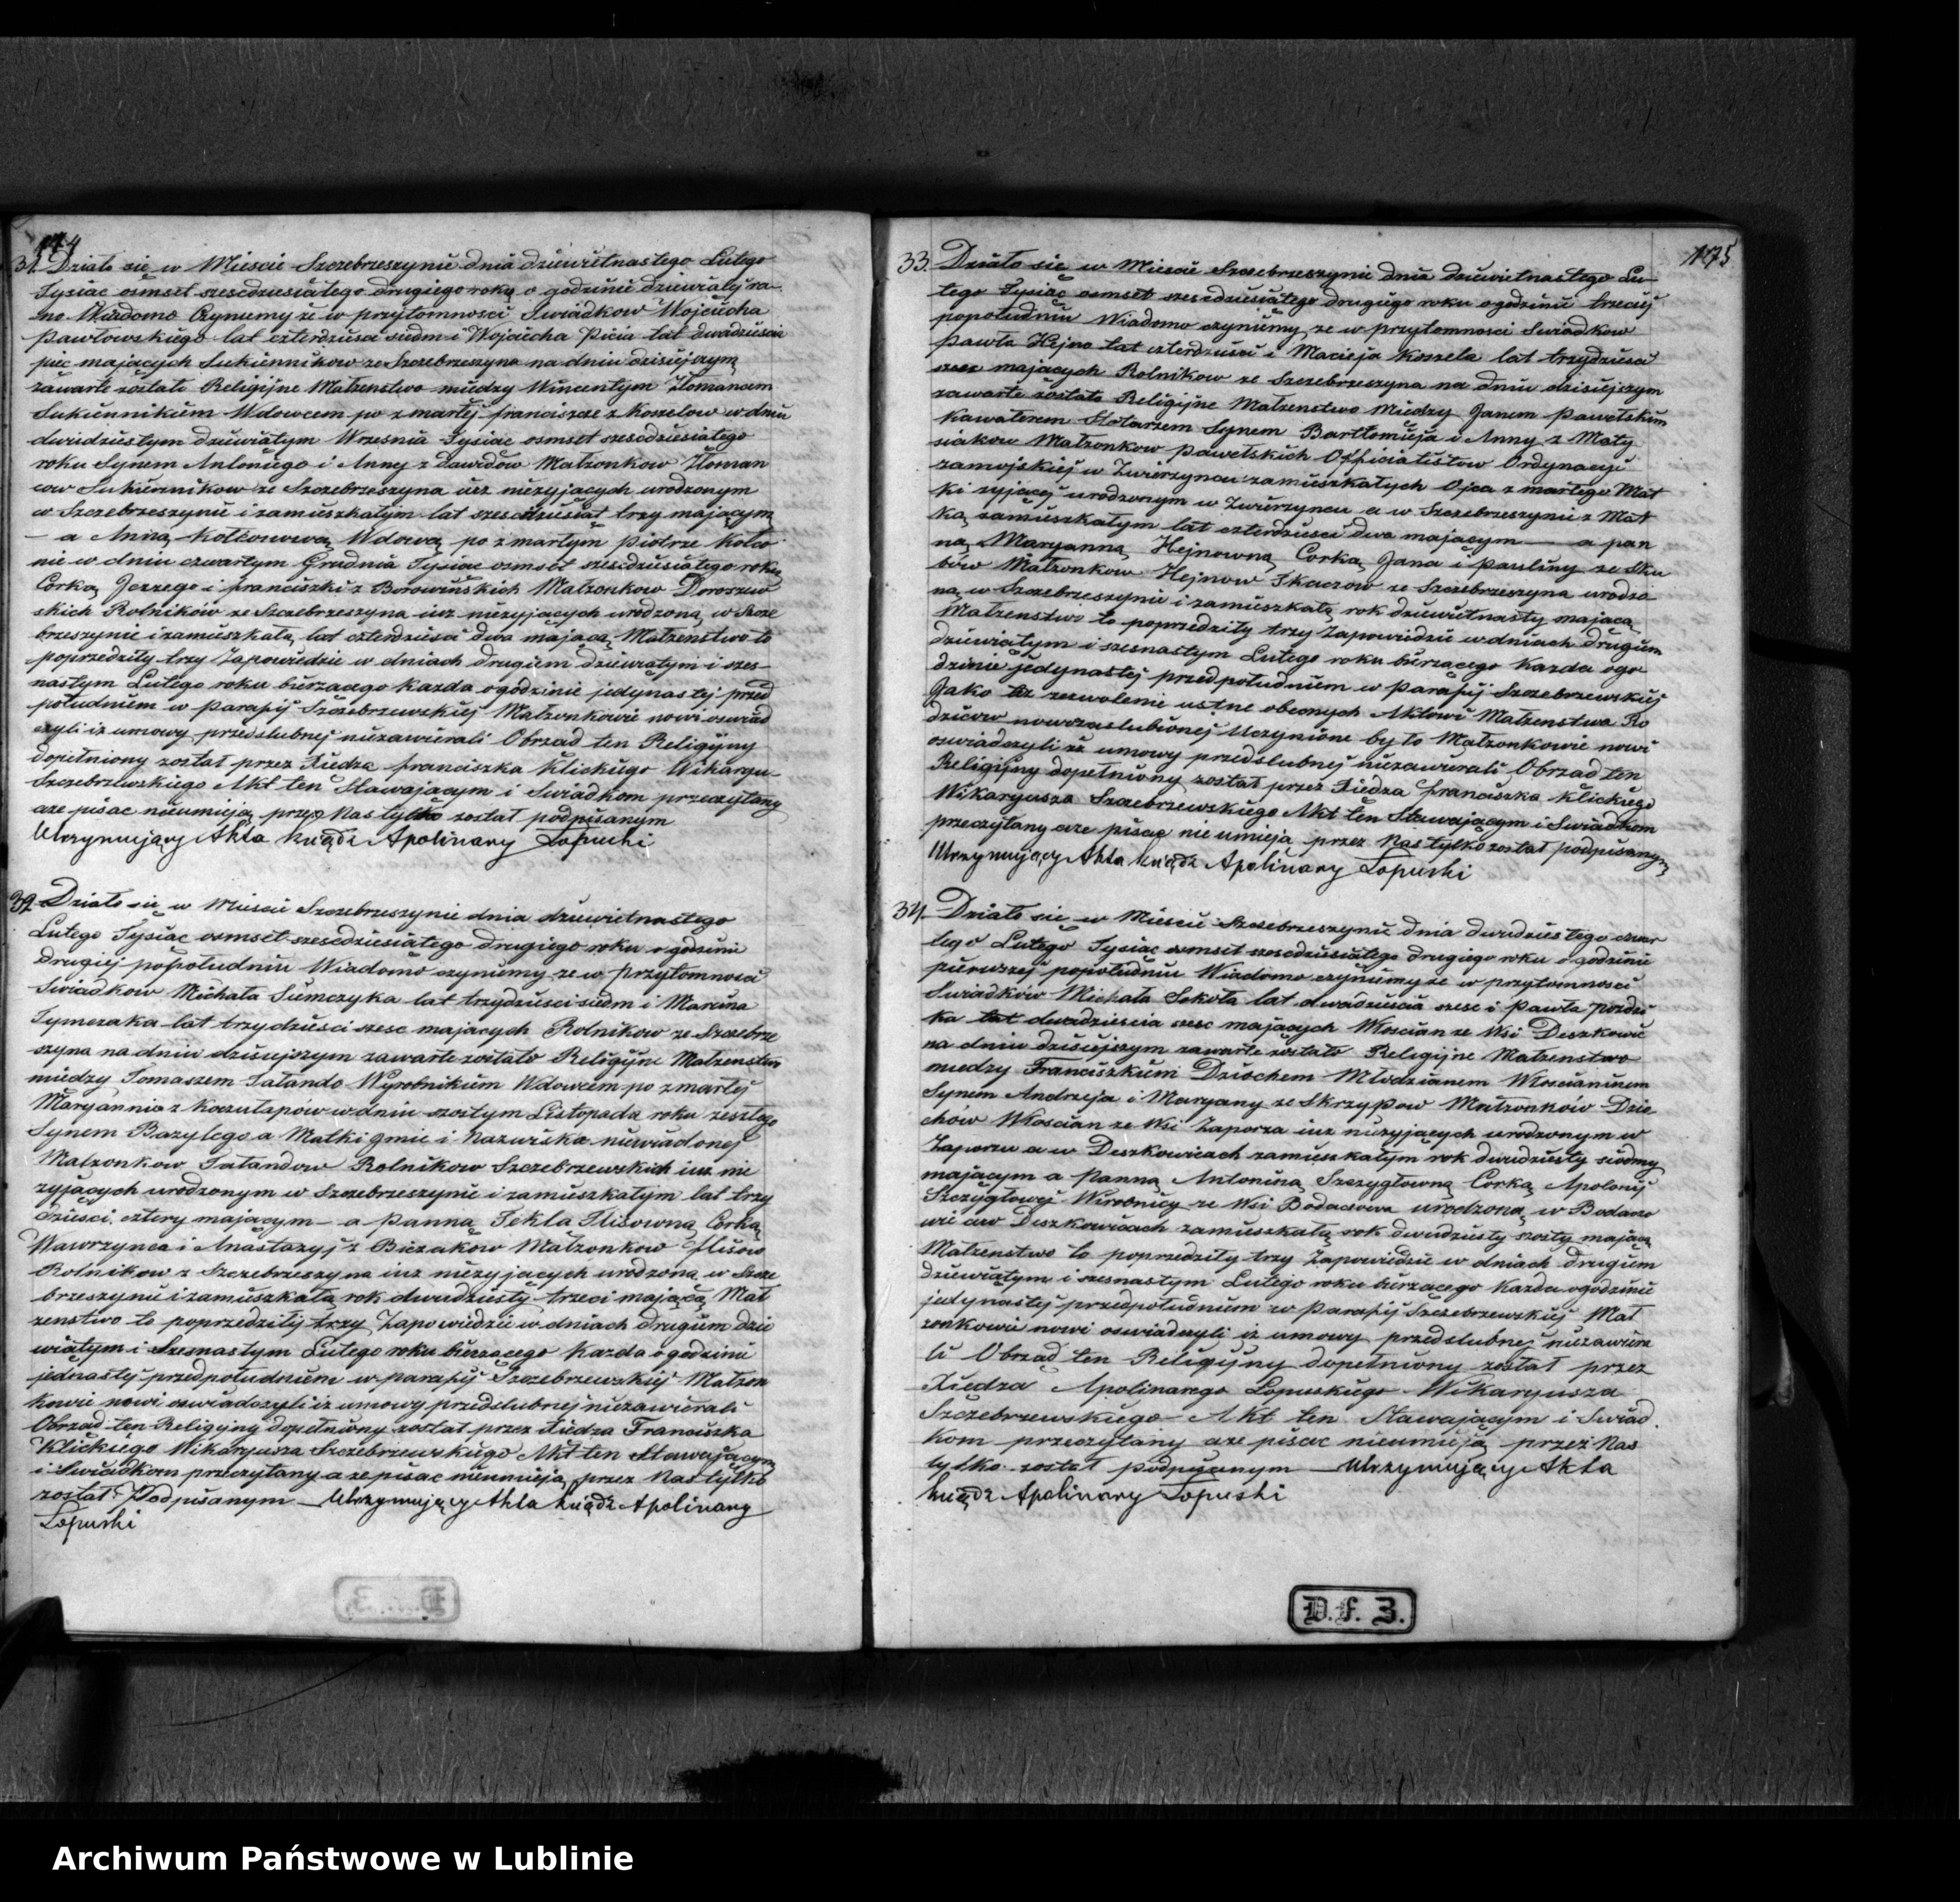 174
31. Działo się w Mieście Szczebrzeszynie dnia dziewiętnastego Lutego
Tysiąc osmset szescdziesiątego drugiego roku o godzinie dziewiątej ra
no Wiadomo Czyniemy że w przytomności Swiadkow Wojciecha
Pawłowskiego lat czterdzieści siedm i Wojciecha Picia lat dwadzieścia
pięc mających Sukiennikow ze Szczebrzeszyna na dniu dzisiejszym
zawarte zostało Religijne Małżenstwo między Wincentym Złomancem
Sukiennikiem Wdowcem po zmarłej Franciszce z Koszelow w dniu
dwidziestym dziewiątym Września Tysiąc osmset szescdziesiątego
roku Synem Antoniego i Anny z Dawidów Małżonkow Złoman
cow Sukiennikow ze Szczebrzeszyna już nieżyjących urodzonym
w Szczebrzeszynie i zamieszkałym lat szescdziesiąt trzy mającym
— a Anną Kołcowową Wdową po zmarłym Piotrze Kołco
nie w dniu czwartym Grudnia Tysiąc osmset szescdziesiątego roku
Corką Jerzego i Franciszki z Borowińskich Małżonkow Dororzew
skich Rolników ze Szczebrzeszyna już nieżyjących urodzoną w Szcze
brzeszynie i zamieszkałą lat czterdzieści dwa mającą Małżenstwo to
poprzedziły trzy Zapowiedzie w dniach drugiem dziewiątym i szes-
nastym Lutego roku bieżącego każda o godzinie jedynastej przed
południem w Parafij Szczebrzewskiej Małżonkowie nowi oswiad
czyli iż umowy przedslubnej niezawierali Obrząd ten Religijny
dopełniony został przez Xiedza Franciszka Klickiego Wikaryu-
Szczebrzewskiego Akt ten Stawającym i Swiadkom przeczytany
aże pisac nieumieją przez Nas tylko został podpisanym
Utrzymujący Akta Ksiądz Apolinary Łopuski
32. Działo się w Mieście Szczebrzeszynie dnia dziewiętnastego
Lutego Tysiąc osmset szescdziesiątego drugiego roku o godzinie
drugiej popołudniu Wiadomo czyniemy ze w Przytomności
Swiadkow Michała Siemczyka lat trzydzieści siedm i Marcina
Tymczaka lat trzydzieści szesc mających Rolnikow ze Szczebrze
szyna na dniu dzisiejszym zawarte zostało Religijne Małżenstwo
między Tomaszem Talando Wyrobnikiem Wdowcem po zmarłej
Maryannie z Koczułapów w dniu szostym Listopada roku zeszłego
Synem Bazylego a Matki Jmie i Nazwiska niewiadonej
Małżonkow Talandow Rolnikow Szczebrzewskich już nie
żyjących urodzonym w Szczebrzeszynie i zamieszkałym lat trzy
dzieści cztery mającym — a Panną Teklą Flisowną Corką
Wawrzynca i Anastazyi z Bieżakow Małżonkow Flisow
Rolnikow z Szczebrzeszyna już nieżyjących urodzoną w Szcze
brzeszynie i zamieszkałą rok dwudziesty trzeci mającą Mał
żenstwo to poprzedziły trzy Zapowiedzie w dniach drugiem dzie
wiątym i Szesnastym Lutego roku bieżącego każda o godzinie
jednastej przedpołudniem w Parafij Szczebrzewskiej Małżon
kowie nowi oswiadczyli iż umowy przedslubnej niezawierali
Obrząd ten Religijny dopełniony został przez Xiedza Franciszka
Klickiego Wikaryusza Szczebrzewskiego Akt ten Stawającym
i Swiadkom przeczytany a ze pisac nieumieją przez Nas tylko
został Podpisanym — Utrzymujący Akta Ksiądz Apolinary
Łopuski
175
33. Działo się w Mieście Szczebrzeszynie dnia dziewiętnastego Lu-
tego Tysiąc osmset szescdziesiątego drugiego roku o godzinie trzeciej
popołudniu Wiadomo czyniemy ze w przytomnosci Swiadkow
Pawła Hejno lat czterdzieści i Macieja Koszela lat trzydzieści
szesc mających Rolnikow ze Szczebrzeszyna na dniu dzisiejszym
zawarte zostało Religijne Małżenstwo Między Janem Pawelskim
Kawalerem Stolarzem Synem Bartłomieja i Anny z Maty
siakow Małżonkow Pawelskich Officialistow Ordynacyi
zamojskiej w Zwierzyncu zamieszkałych Ojca zmarłego Mat
ki żyjącej urodzonym w Zwierzyncu a w Szczebrzeszynie z Mat
ką zamieszkałym lat czterdzieści dwa mającym — a Pan
ną Maryanną Hejnowną Corką Jana i Pauliny ze Sku
bów Małżonkow Hejnow Tkaczow ze Szczebrzeszyna urodzo
ną w Szczebrzeszynie i zamieszkałą rok dziewiętnasty mającą
Małżenstwo to poprzedziły trzy Zapowiedzie w dniach drugiem
dziewiątym i szesnastym Lutego roku bieżącego każda ogo
dzinie jedynastej przedpołudniem w Parafij Szczebrzewskiej
Jako też zezwolenie ustne obecnych Aktowi Małżenstwa Ro
dziców nowozaslubionej Uczynione było Małżonkowie nowi
oswiadczyli iż umowy przedslubnej niezawierali Obrząd ten
Religijny dopełniony został przez Xiedza Franciszka Klickiego
Wikaryusza Szczebrzewskiego Akt ten Stawającym i Swiadkom
przeczytany aże pisac nie umieją przez Nas tylko został podpisanym
Utrzymujący Akta Ksiądz Apolinary Łopuski
34. Działo się w Mieście Szczebrzeszynie dnia dwudziestego czwar
tego Lutego Tysiąc osmset szescdziesiątego drugiego roku o godzinie
pierwszej popołudniu Wiadomo czyniemy ze w przytomnosci
Swiadków Michała Sokoła lat dwadzieścia szesc i Pawła
ka lat dwadzieścia szesc mających Włoscian ze Wsi Deszkowic
na dniu dzisiejszym zawarte zostało Religijne Małżenstwo
miedzy Franciszkiem Dziochem Młodzianem Włoscianinem
Synem Andrzeja i Maryany ze Skrzypow Małżonków Dzio
chów Włoscian ze Wsi Zaporza już nieżyjących urodzonym w
Zaporzu a w Deszkowicach zamieszkałym rok dwudziesty siodmy
mającym a Panną Antoniną Szczygłowną Corką Apolonij
Szczygłowej Wrobnicy ze Wsi Bodaczowa urodzoną w Bodaczo
wie a w Deszkowicach zamieszkałą rok dwudziesty szosty mającą
Małżenstwo to poprzedziły trzy Zapowiedzie w dniach drugiem
dziewiątym i szesnastym Lutego roku bieżącego każda o godzinie
jedynastej przedpołudniem w Parafij Szczebrzewskiej Mał
żonkowie nowi oswiadczyli iż umowy przedslubnej niezawiera
li Obrząd ten Religijny dopełniony został przez
Xiedza Apolinarego Łopuskiego Wikaryusza
Szczebrzewskiego — Akt ten Stawającym i Swiad
kom przeczytany aże pisac nieumieją przez Nas
tylko został podpisanym — Utrzymujący Akta
Ksiądz Apolinary Łopuski
D. f. Z.
Archiwum Państwowe w Lublinie